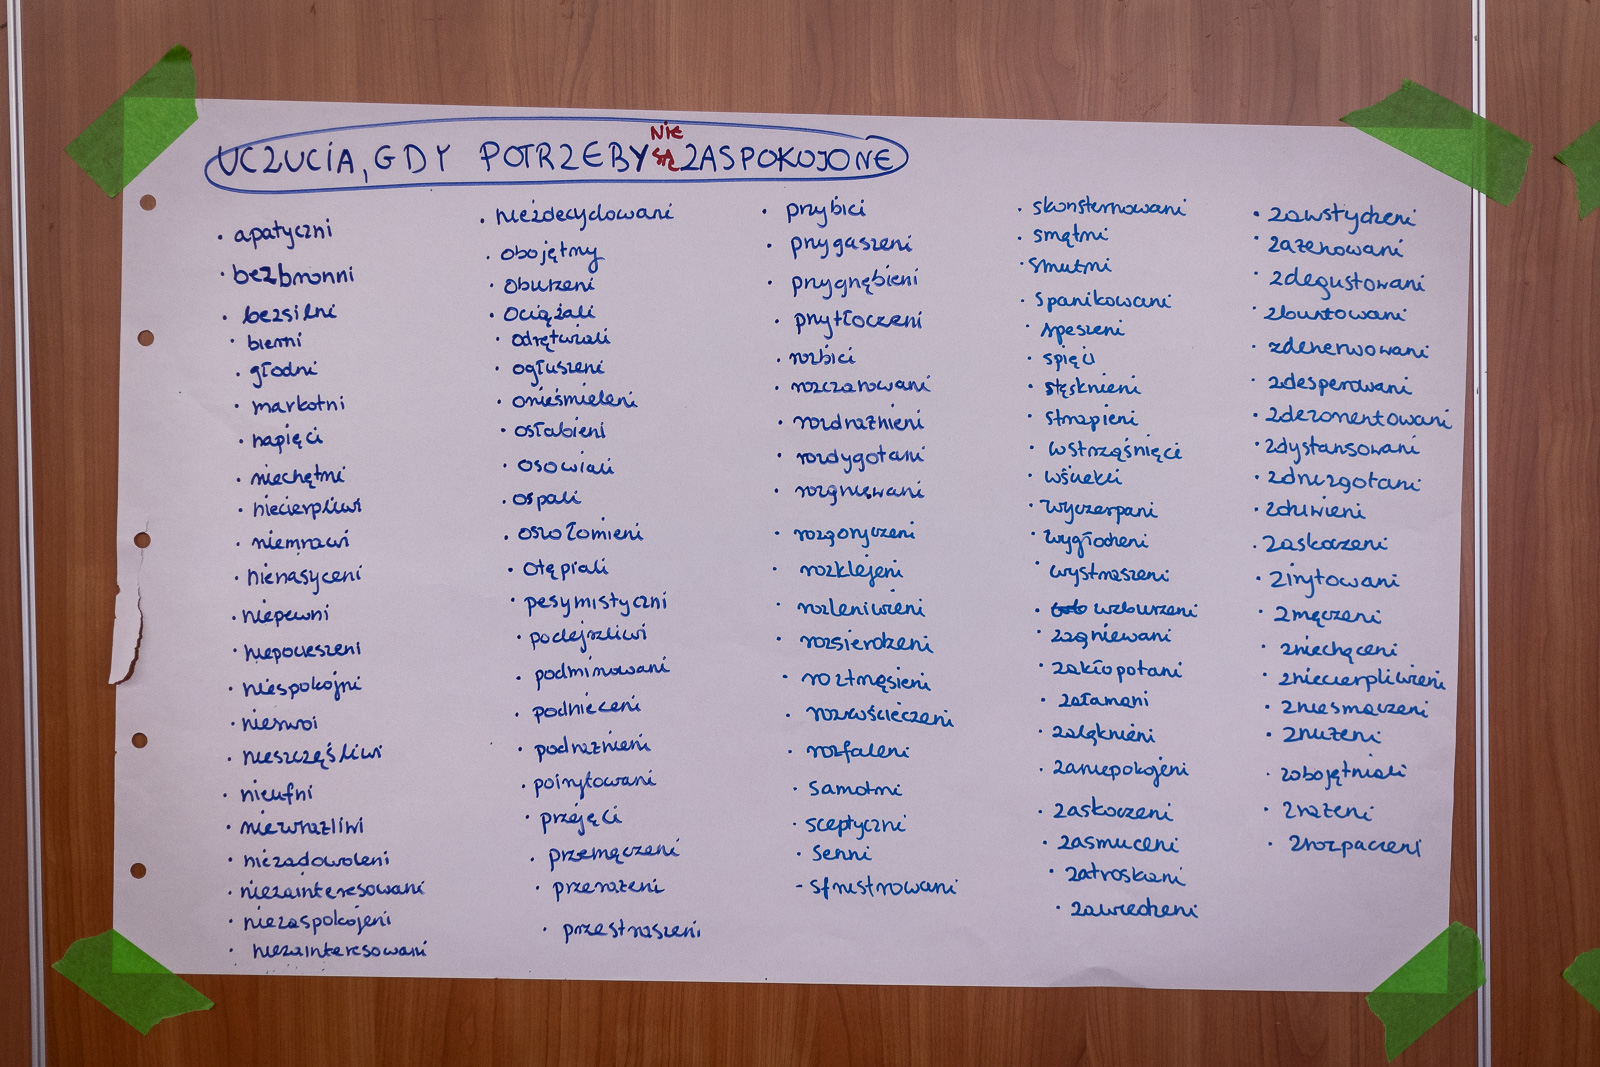 UCZUCIA, GDY POTRZEBY NIE SĄ ZASPOKOJONE
· apatyczni
· bezbronni
· bezsilni
· bierni
· głodni
· markotni
· napięci
· niechętni
· niecierpliwi
· niemrawi
· nienasyceni
· niepewni
· niepocieszeni
· niespokojni
· nieswoi
· nieszczęśliwi
· nieufni
· niewrażliwi
· niezadowoleni
· niezainteresowani
· niezaspokojeni
· niezainteresowani
· niezdecydowani
· obojętny
· oburzeni
· ociężali
· odrętwiali
· ogłuszeni
· onieśmieleni
· osłabieni
· osowiali
· ospali
· oszołomieni
· otępiali
· pesymistyczni
· podejrzliwi
· podminowani
· podnieceni
· podrażnieni
· poirytowani
· przejęci
· przemęczeni
· przerażeni
· przestraszeni
· przybici
· przygaszeni
· przygnębieni
· przytłoczeni
· rozbici
· rozczarowani
· rozdrażnieni
· rozdygotani
· rozgniewani
· rozgoryczeni
· rozklejeni
· rozleniwieni
· rozsierdzeni
· roztrzęsieni
· rozwścieczeni
· rozżaleni
· samotni
· sceptyczni
· senni
- sfrustrowani
· skonsternowani
· smętni
· smutni
· spanikowani
· speszeni
· spięci
· stęsknieni
· strapieni
· wstrząśnięci
· wściekli
· wyczerpani
· wygłodzeni
· wystraszeni
· wzburzeni
· zagniewani
· zakłopotani
· załamani
· zalęknieni
· zaniepokojeni
· zaskoczeni
· zasmuceni
· zatroskani
· zawiedzeni
· zawstydzeni
· zażenowani
· zdegustowani
· zbuntowani
· zdenerwowani
· zdesperowani
· zdezorientowani
· zdystansowani
· zdruzgotani
· zdziwieni
· zaskoczeni
· zirytowani
· zmęczeni
· zniechęceni
· zniecierpliwieni
· zniesmaczeni
· znużeni
· zobojętniali
· zrażeni
· zrozpaczeni